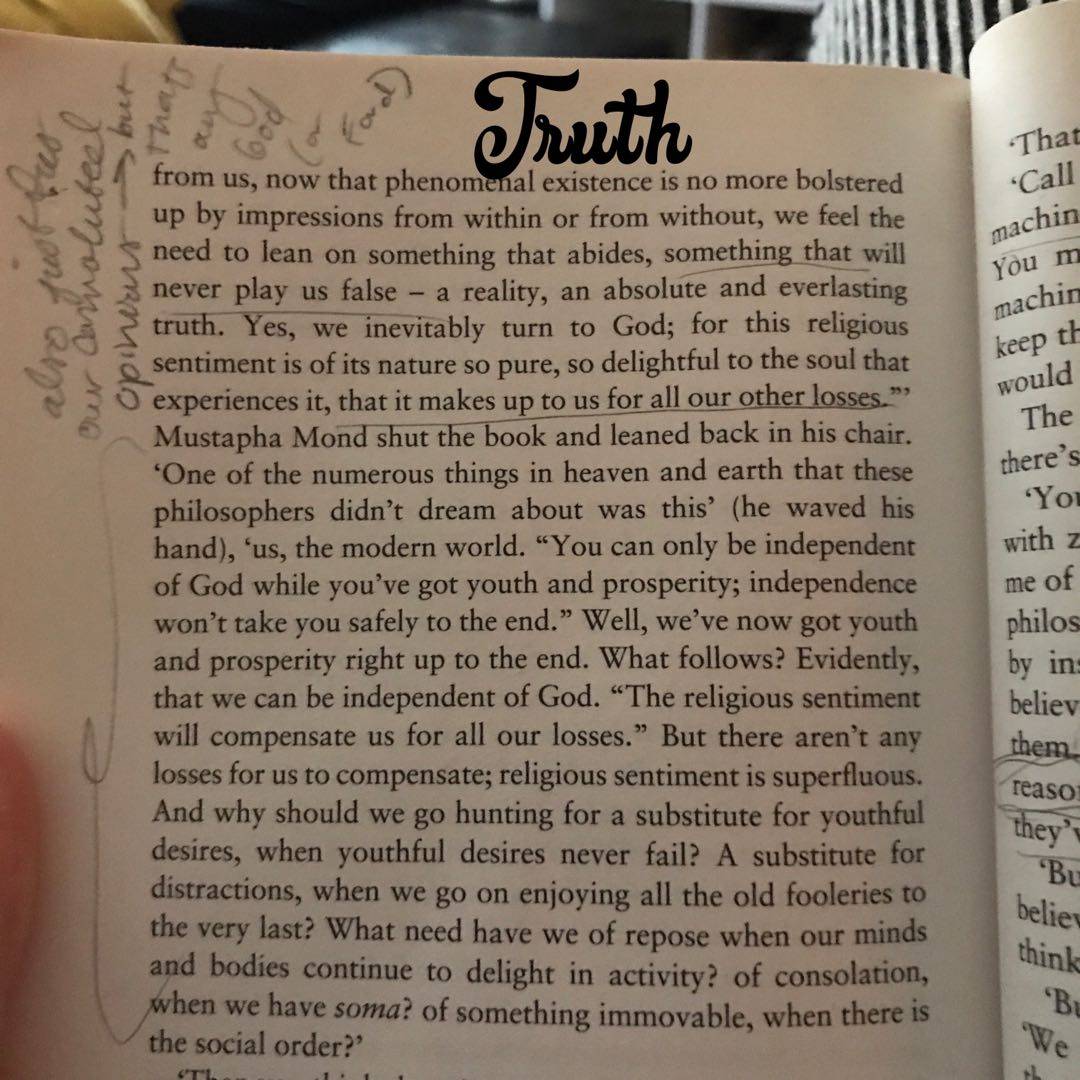 Truth
but
thats
any
God
(or
Ford)
also
our
opinions → but
from us, now that phenomenal existence is no more bolstered
up by impressions from within or from without, we feel the
need to lean on something that abides, something that will
never play us false – a reality, an absolute and everlasting
truth. Yes, we inevitably turn to God; for this religious
sentiment is of its nature so pure, so delightful to the soul that
experiences it, that it makes up to us for all our other losses.”’
Mustapha Mond shut the book and leaned back in his chair.
‘One of the numerous things in heaven and earth that these
philosophers didn’t dream about was this’ (he waved his
hand), ‘us, the modern world. “You can only be independent
of God while you’ve got youth and prosperity; independence
won’t take you safely to the end.” Well, we’ve now got youth
and prosperity right up to the end. What follows? Evidently,
that we can be independent of God. “The religious sentiment
will compensate us for all our losses.” But there aren’t any
losses for us to compensate; religious sentiment is superfluous.
And why should we go hunting for a substitute for youthful
desires, when youthful desires never fail? A substitute for
distractions, when we go on enjoying all the old fooleries to
the very last? What need have we of repose when our minds
and bodies continue to delight in activity? of consolation,
when we have soma? of something immovable, when there is
the social order?’
‘That
‘Call
machin
You m
machin
keep th
would
The
there’s
‘You
with z
me of
philos
by ins
believ
them.
reason
they’v
‘Bu
believ
think
‘Bu
‘We